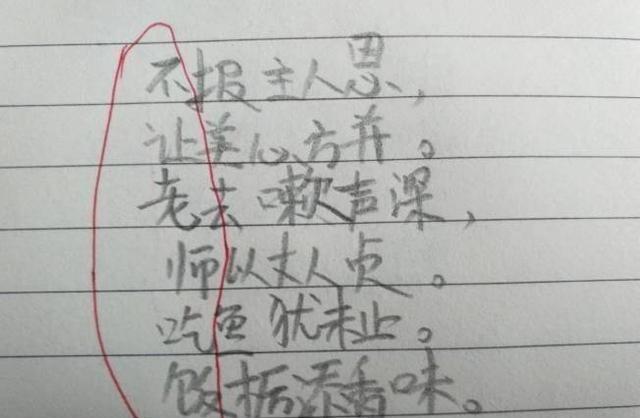 不报主人恩,
让美心方并。
老去嗽声深,
师以丈人贞。
吃鱼犹未止。
饭后添香味。